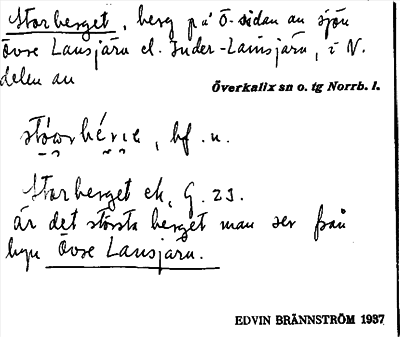 Storberget, berg på Ö-sidan av sjön
Övre Lansjärv el. Inder-Lansjärv, i N.
delen av
Överkalix sn o. tg Norrb. l.
bf. n.
Storberget ek, G. 23.
är det största berget man ser från
byn Övre Lansjärv.
EDVIN BRÄNNSTRÖM 1937